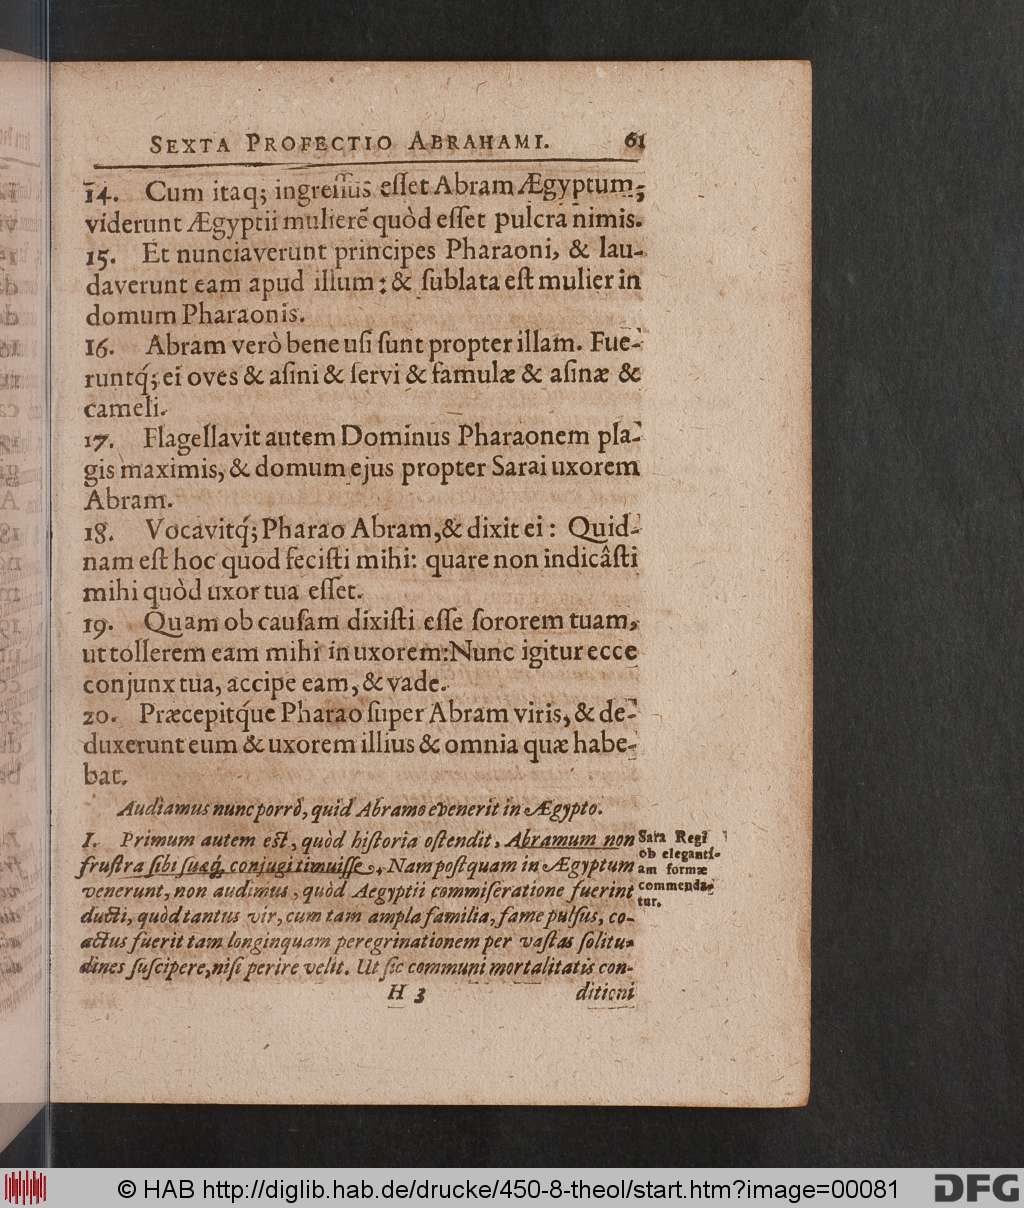 SEXTA PROFECTIO ABRAHAMI. 61
14. Cum itaq; ingreſſus eſſet Abram Ægyptum;
viderunt Ægyptii mulierē quòd eſſet pulcra nimis.
15. Et nunciaverunt principes Pharaoni, & lau-
daverunt eam apud illum: & ſublata eſt mulier in
domum Pharaonis.
16. Abram verò bene uſi ſunt propter illam. Fue-
runtq́; ei oves & aſini & ſervi & famulæ & aſinæ &
cameli.
17. Flagellavit autem Dominus Pharaonem pla-
gis maximis, & domum ejus propter Sarai uxorem
Abram.
18. Vocavitq́; Pharao Abram, & dixit ei: Quid-
nam eſt hoc quod feciſti mihi: quare non indicâſti
mihi quòd uxor tua eſſet.
19. Quam ob cauſam dixiſti eſſe ſororem tuam,
ut tollerem eam mihi in uxorem: Nunc igitur ecce
conjunx tua, accipe eam, & vade.
20. Præcepitq́ue Pharao ſuper Abram viris, & de-
duxerunt eum & uxorem illius & omnia quæ habe-
bat.
Audiamus nunc porrò, quid Abramo evenerit in Ægypto.
I. Primum autem eſt, quòd hiſtoria oſtendit, Abramum non
fruſtra ſibi ſuæq́, conjugi timuiſſe. Nam poſtquam in Ægyptum
venerunt, non audimus, quòd Aegyptii commiſeratione fuerint
ducti, quòd tantus vir, cum tam ampla familia, fame pulſus, co-
actus fuerit tam longinquam peregrinationem per vaſtas ſolitu-
dines ſuſcipere, niſi perire velit. Ut ſic communi mortalitatis con-
H 3 ditioni
Sara Regi
ob eleganti-
am formæ
commenda-
tur.
© HAB http://diglib.hab.de/drucke/450-8-theol/start.htm?image=00081
DFG